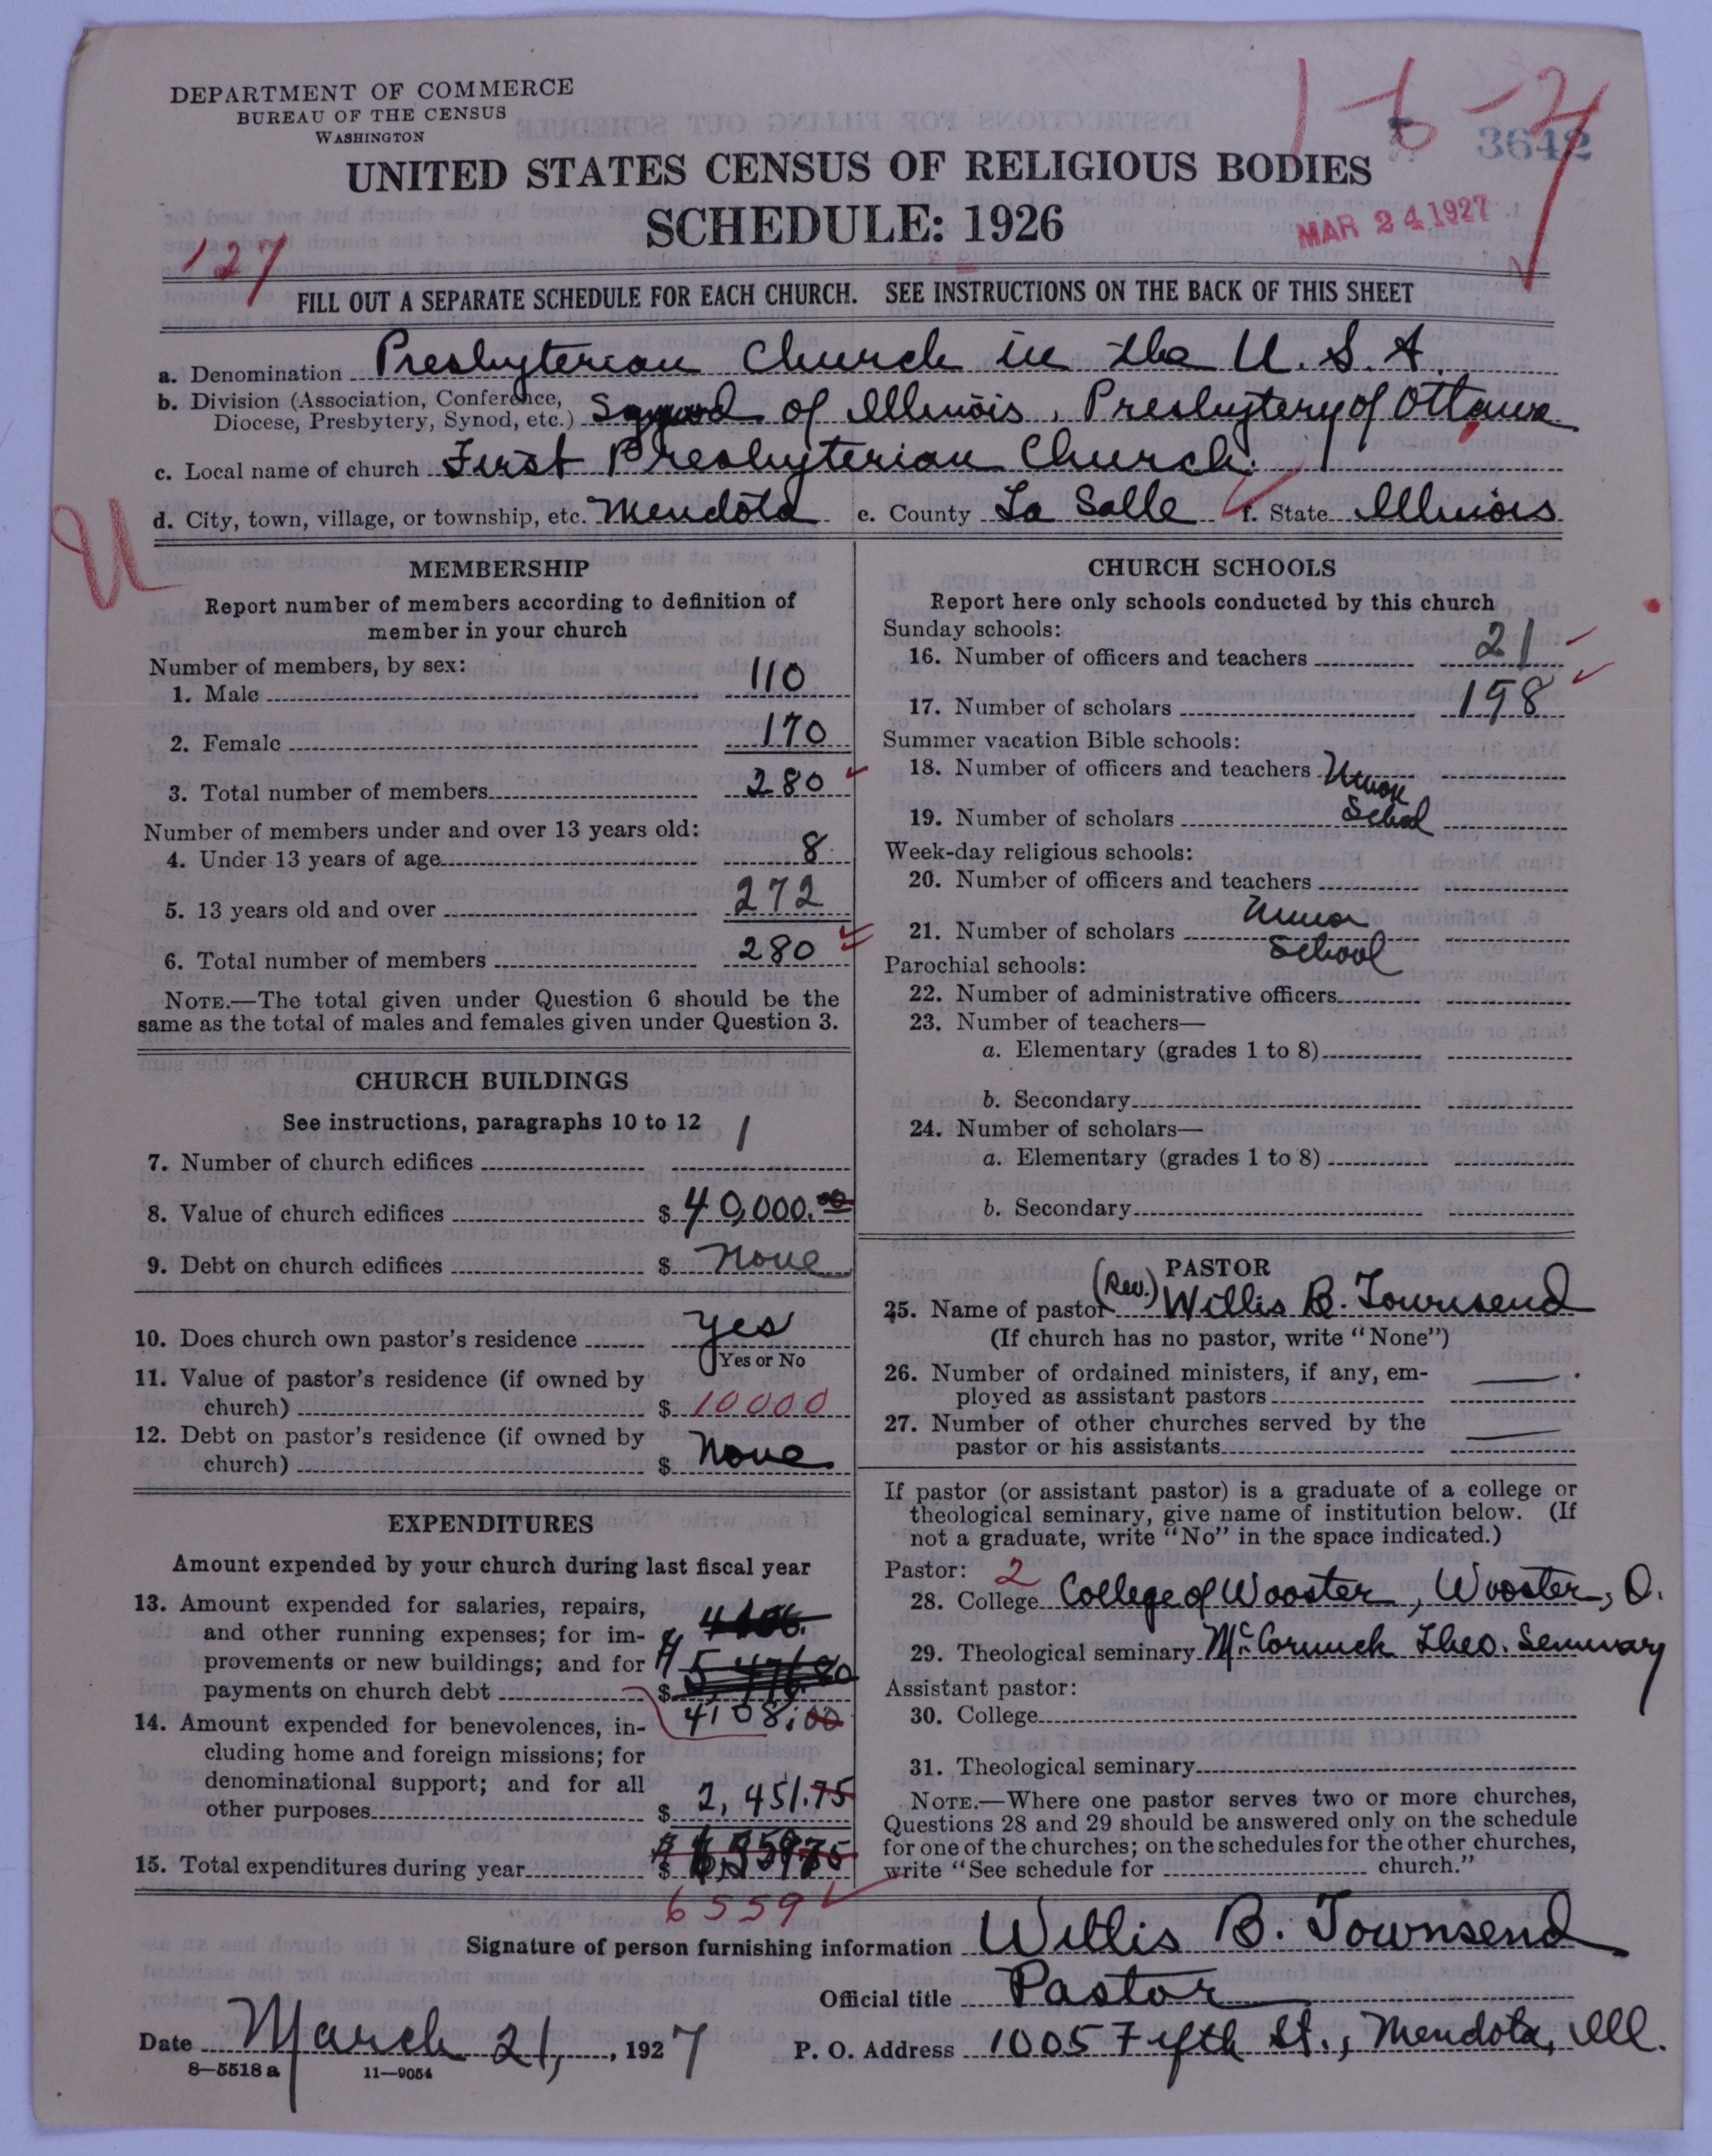 DEPARTMENT OF COMMERCE
BUREAU OF THE CENSUS
WASHINGTON
3642
UNITED STATES CENSUS OF RELIGIOUS BODIES
SCHEDULE: 1926
MAR 24 1927
127
FILL OUT A SEPARATE SCHEDULE FOR EACH CHURCH. SEE INSTRUCTIONS ON THE BACK OF THIS SHEET
a. Denomination Presbyterian Church in the U. S. A.
b. Division (Association, Conference,
Diocese, Presbytery, Synod, etc.) Synod of Illinois, Presbytery of Ottawa
c. Local name of church First Presbyterian Church.
d. City, town, village, or township, etc. Mendota e. County La Salle f. State Illinois
U
MEMBERSHIP
Report number of members according to definition of
member in your church
Number of members, by sex:
1. Male 110
2. Female 170
3. Total number of members 280
Number of members under and over 13 years old:
4. Under 13 years of age 8
5. 13 years old and over 272
6. Total number of members 280
NOTE.—The total given under Question 6 should be the
same as the total of males and females given under Question 3.
CHURCH BUILDINGS
See instructions, paragraphs 10 to 12
7. Number of church edifices 1
8. Value of church edifices $ 40,000.00
9. Debt on church edifices $ None
10. Does church own pastor's residence Yes
Yes or No
11. Value of pastor's residence (if owned by
church) $ 10000
12. Debt on pastor's residence (if owned by
church) $ None
EXPENDITURES
Amount expended by your church during last fiscal year
13. Amount expended for salaries, repairs,
and other running expenses; for im-
provements or new buildings; and for
payments on church debt $
4108.00
14. Amount expended for benevolences, in-
cluding home and foreign missions; for
denominational support; and for all
other purposes $ 2,451.75
15. Total expenditures during year $
6559
CHURCH SCHOOLS
Report here only schools conducted by this church
Sunday schools:
16. Number of officers and teachers 21
17. Number of scholars 198
Summer vacation Bible schools:
18. Number of officers and teachers Union
19. Number of scholars School
Week-day religious schools:
20. Number of officers and teachers
21. Number of scholars Union
School
Parochial schools:
22. Number of administrative officers
23. Number of teachers—
a. Elementary (grades 1 to 8)
b. Secondary
24. Number of scholars—
a. Elementary (grades 1 to 8)
b. Secondary
PASTOR
25. Name of pastor (Rev.) Willis B. Townsend
(If church has no pastor, write "None")
26. Number of ordained ministers, if any, em-
ployed as assistant pastors
27. Number of other churches served by the
pastor or his assistants
If pastor (or assistant pastor) is a graduate of a college or
theological seminary, give name of institution below. (If
not a graduate, write "No" in the space indicated.)
Pastor: 2
28. College College of Wooster, Wooster, O.
29. Theological seminary McCormick Theo. Seminary
Assistant pastor:
30. College
31. Theological seminary
NOTE.—Where one pastor serves two or more churches,
Questions 28 and 29 should be answered only on the schedule
for one of the churches; on the schedules for the other churches,
write "See schedule for church."
Signature of person furnishing information Willis B. Townsend
Official title Pastor
Date March 21, 1927 P. O. Address 1005 Fifth St., Mendota, Ill.
8—5518 a 11—9054